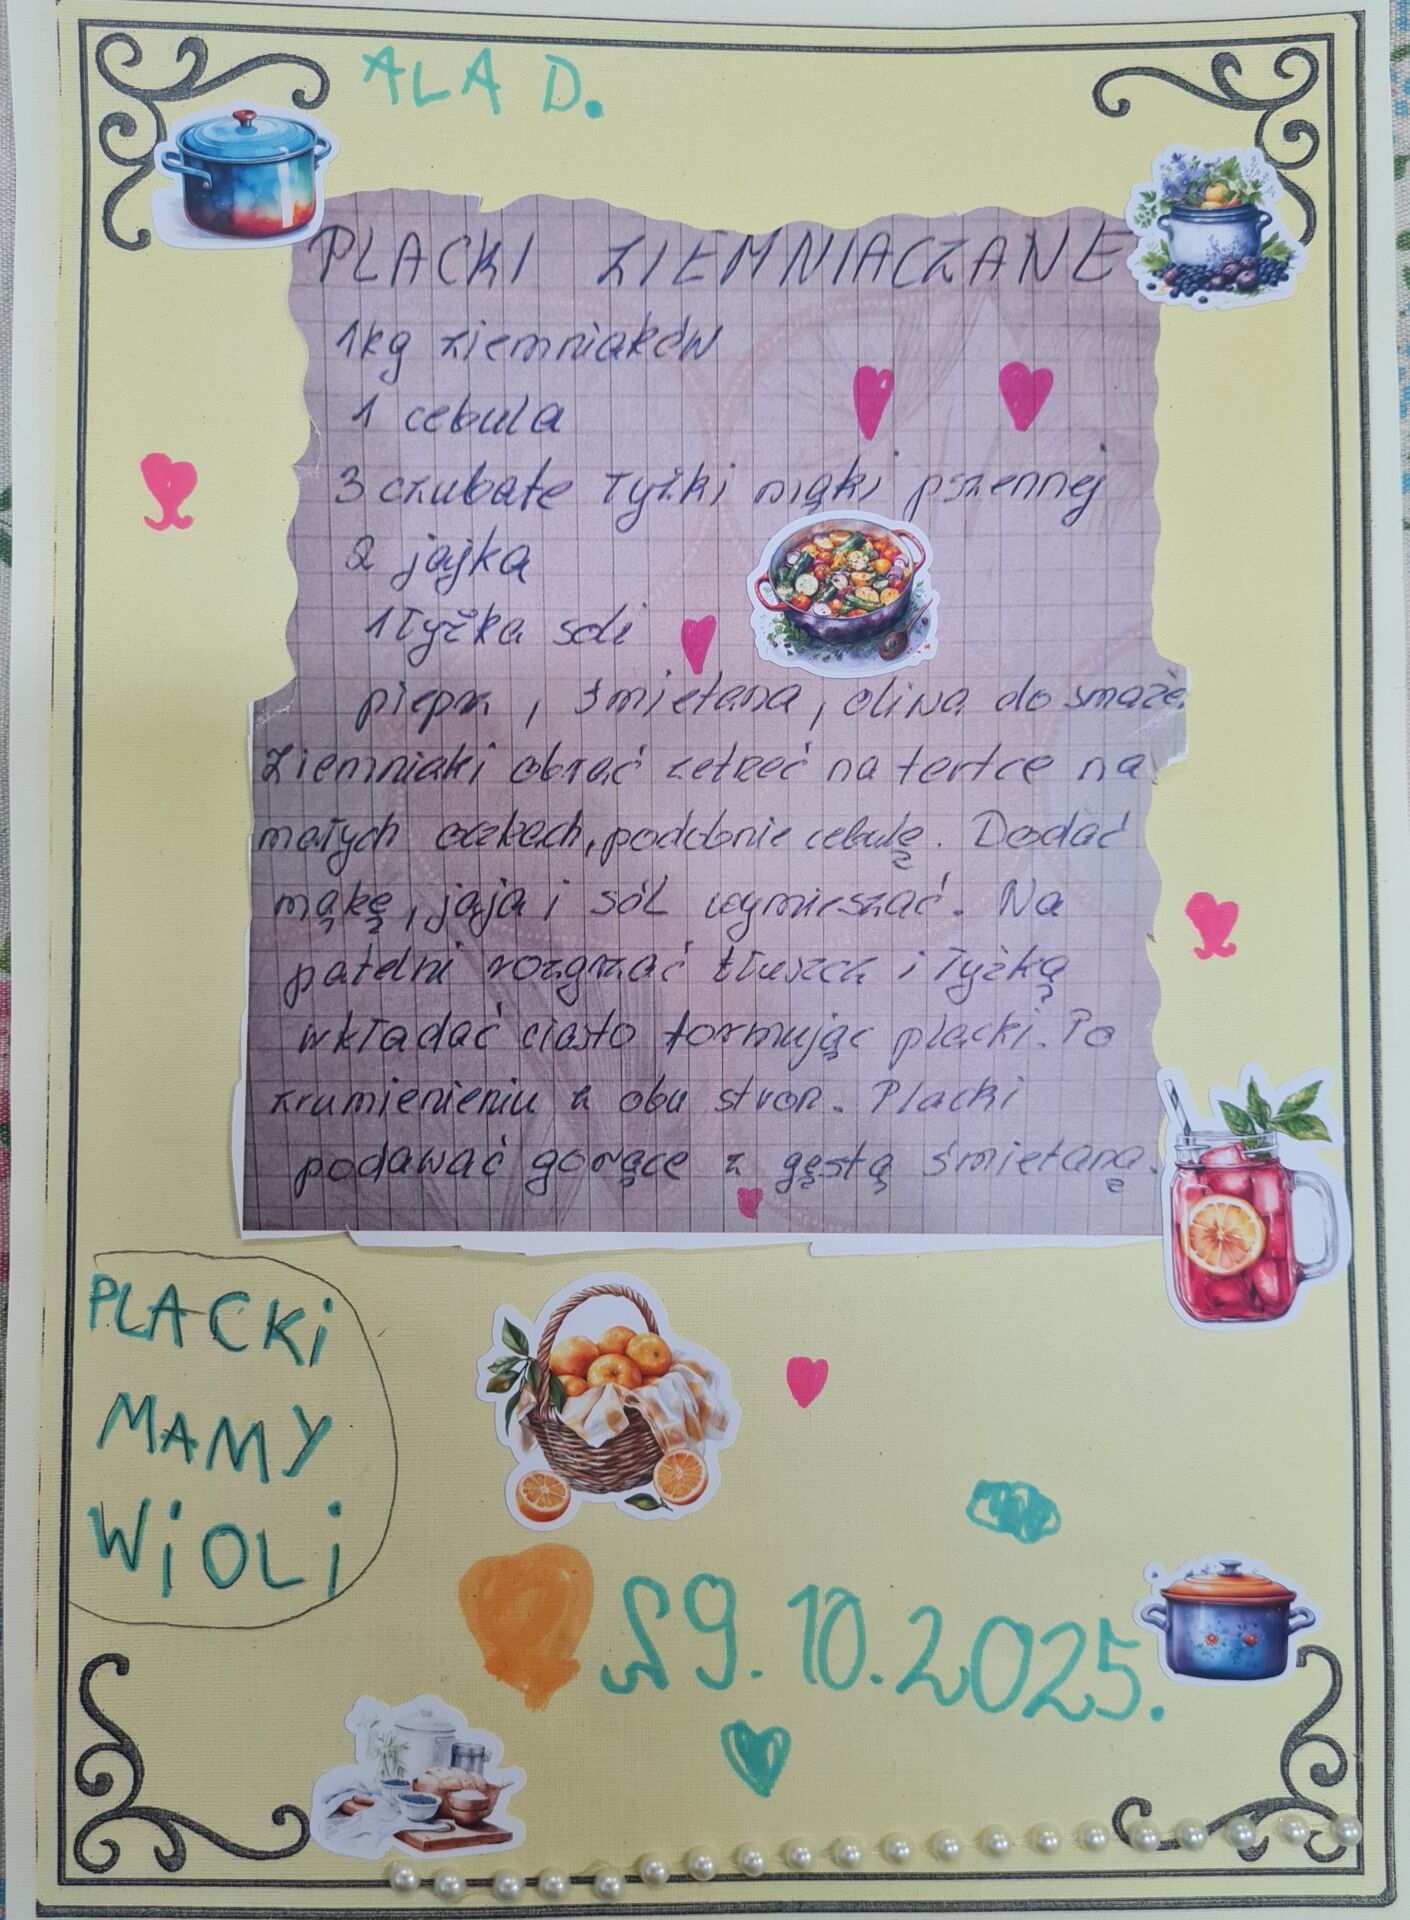 ALA D.
PLACKI ZIEMNIACZANE
1kg ziemniaków
1 cebula
3 czubate łyżki mąki pszennej
2 jajka
1 łyżka soli
pieprz, śmietana, oliwa do smaże
Ziemniaki obrać zetrzeć na tertce na
małych oczkach, podobnie cebulę. Dodać
mąkę, jaja i sól wymieszać. Na
patelni rozgrzać tłuszcz i łyżką
wkładać ciasto formując placki. Po
zrumienieniu z obu stron. Placki
podawać gorące z gęstą śmietaną.
PLACKi
MAMY
WiOLi
29.10.2025.